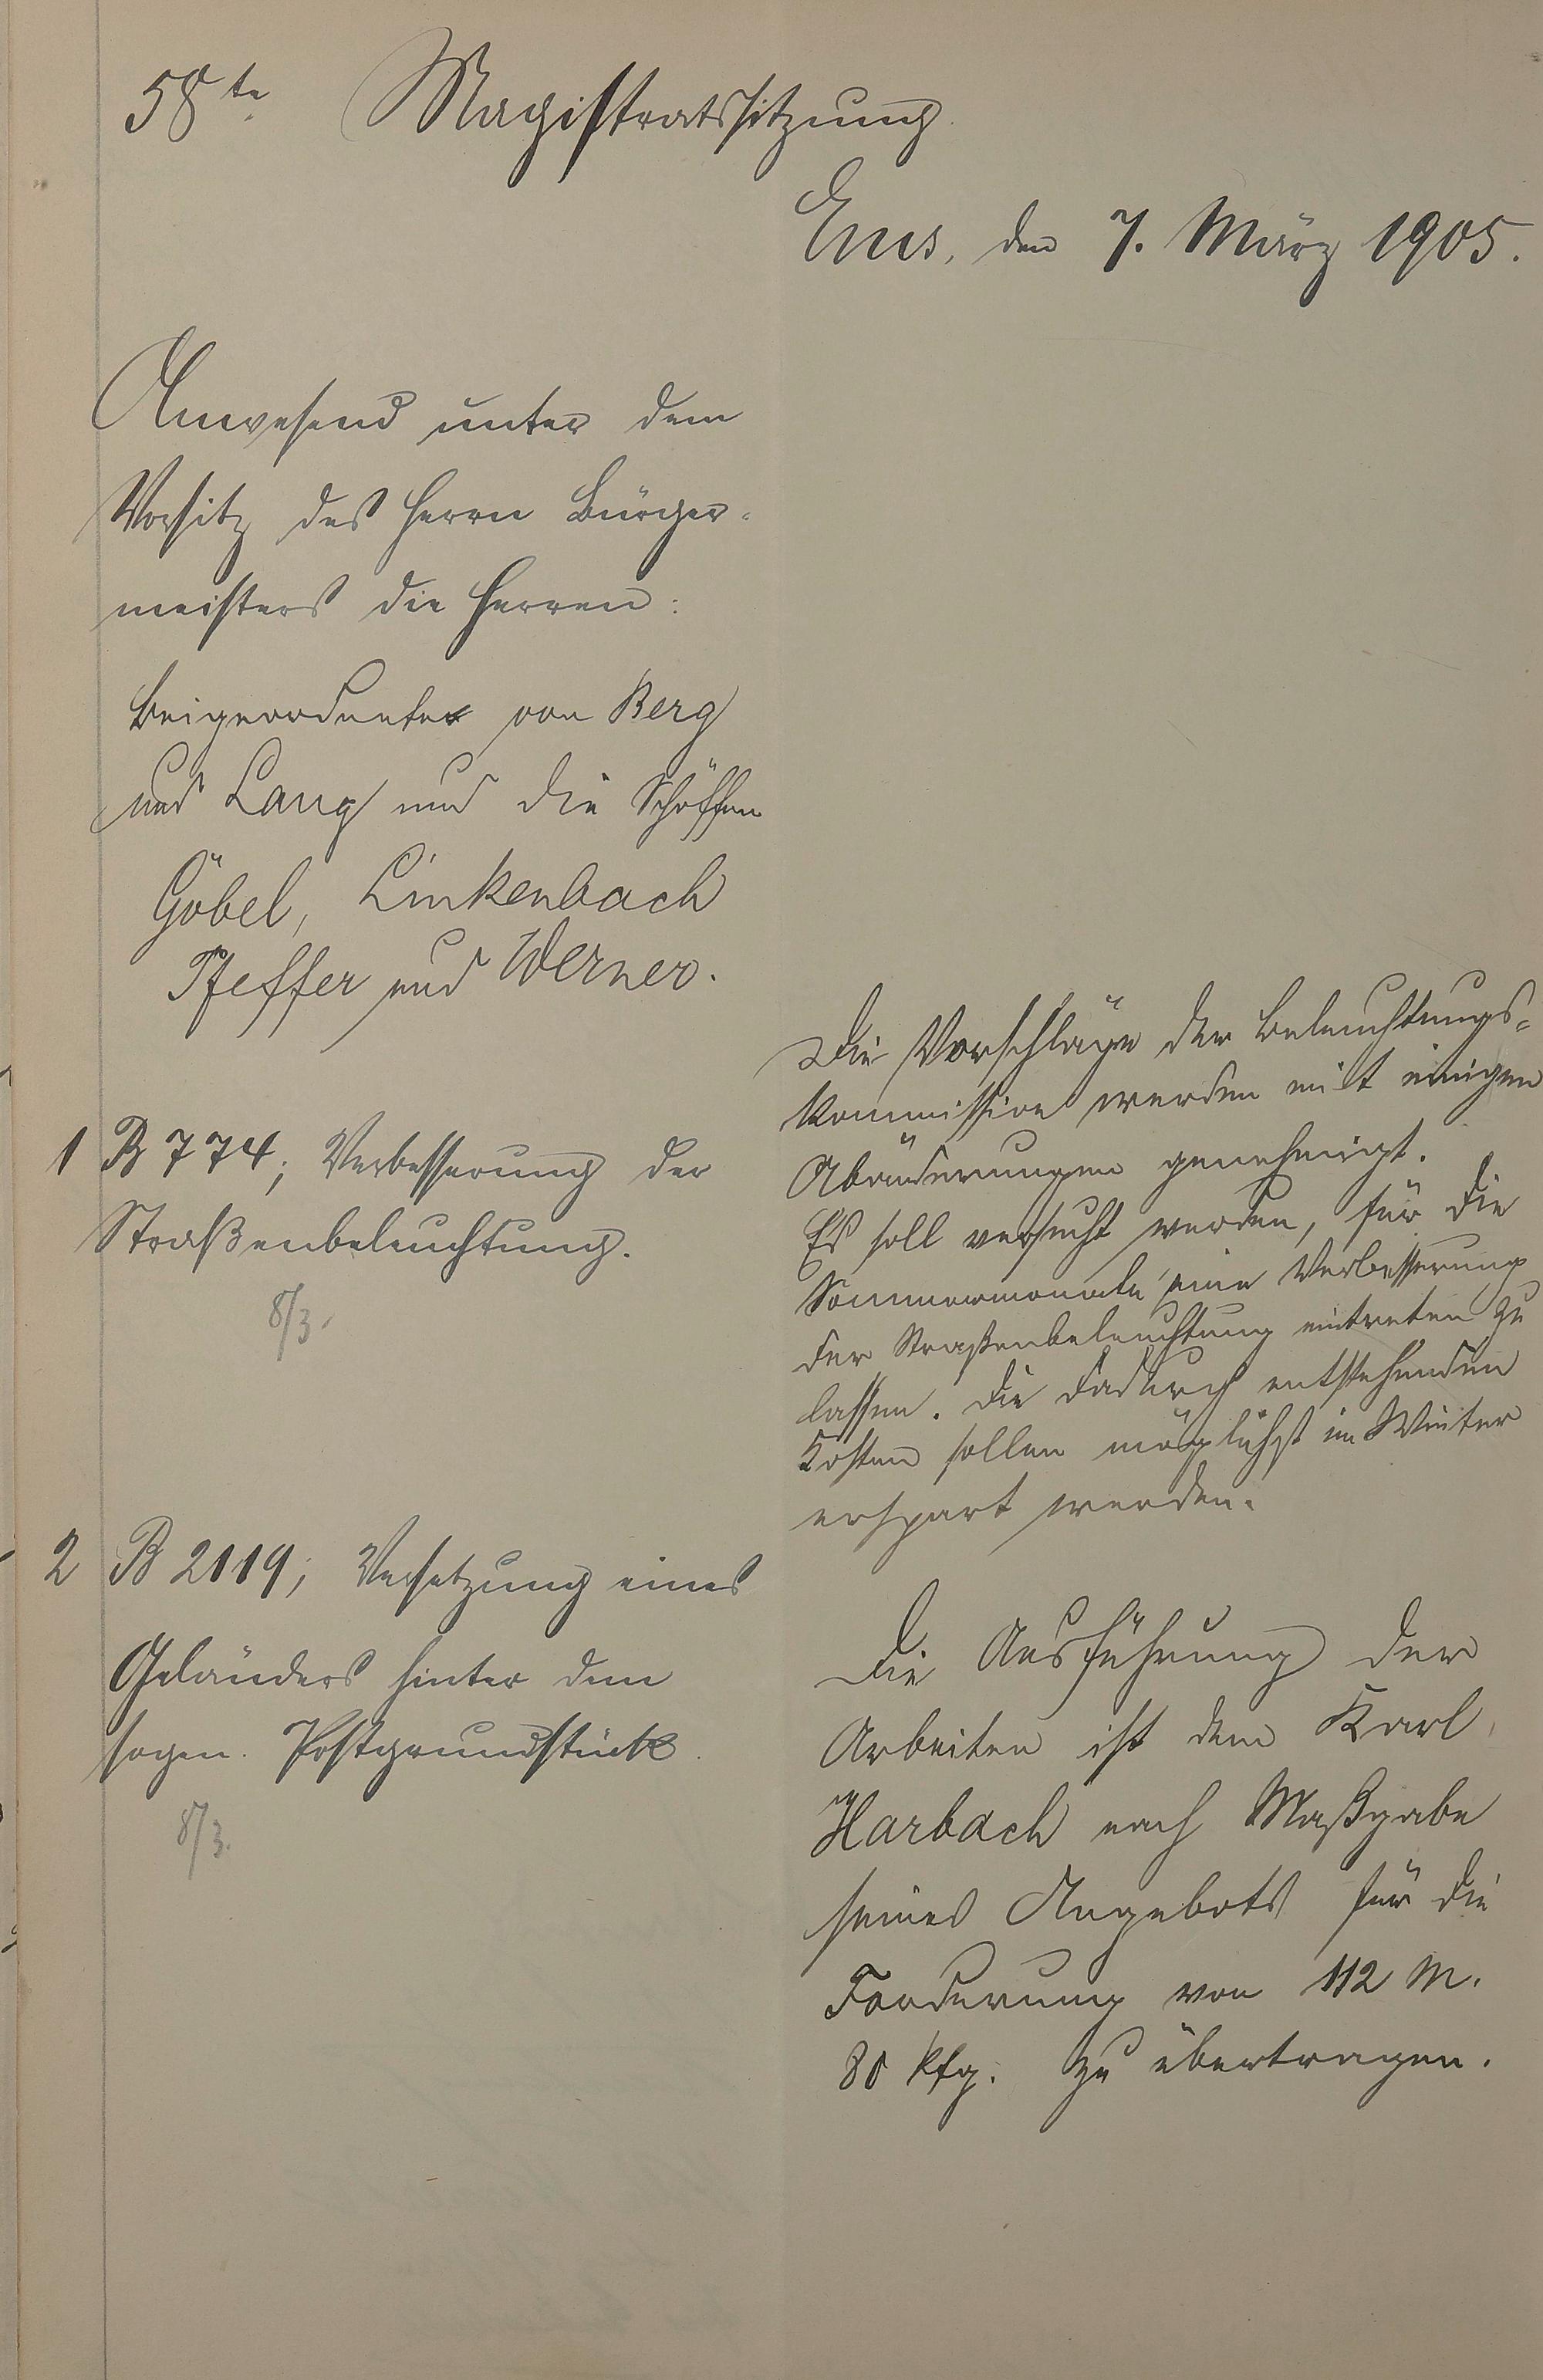 58te Magistratssitzung.
Ems, den 7. März 1905.
Anwesend unter dem
Vorsitz des Herrn Bürger-
meisters die Herren:
Beigeordneter von Berg
und Lang und die Schöffen
Göbel, Linkenbach
Pfeffer und Werner.
1 B 774; Verbesserung der
Straßenbeleuchtung.
8/3.
Die Vorschläge der Beleuchtungs-
kommission werden mit einigen
Abänderungen genehmigt.
Es soll versucht werden, für die
Sommermonate eine Verbesserung
der Straßenbeleuchtung eintreten zu
lassen. Die dadurch entstehenden
Kosten sollen möglichst im Winter
erspart werden.
2 B 2119; Versetzung eines
Geländers hinter dem
sogen. Postgrundstück.
8/3.
Die Ausführung der
Arbeiten ist dem Karl
Harbach nach Maßgabe
seines Angebots für die
Forderung von 112 M.
80 Pfg. zu übertragen.